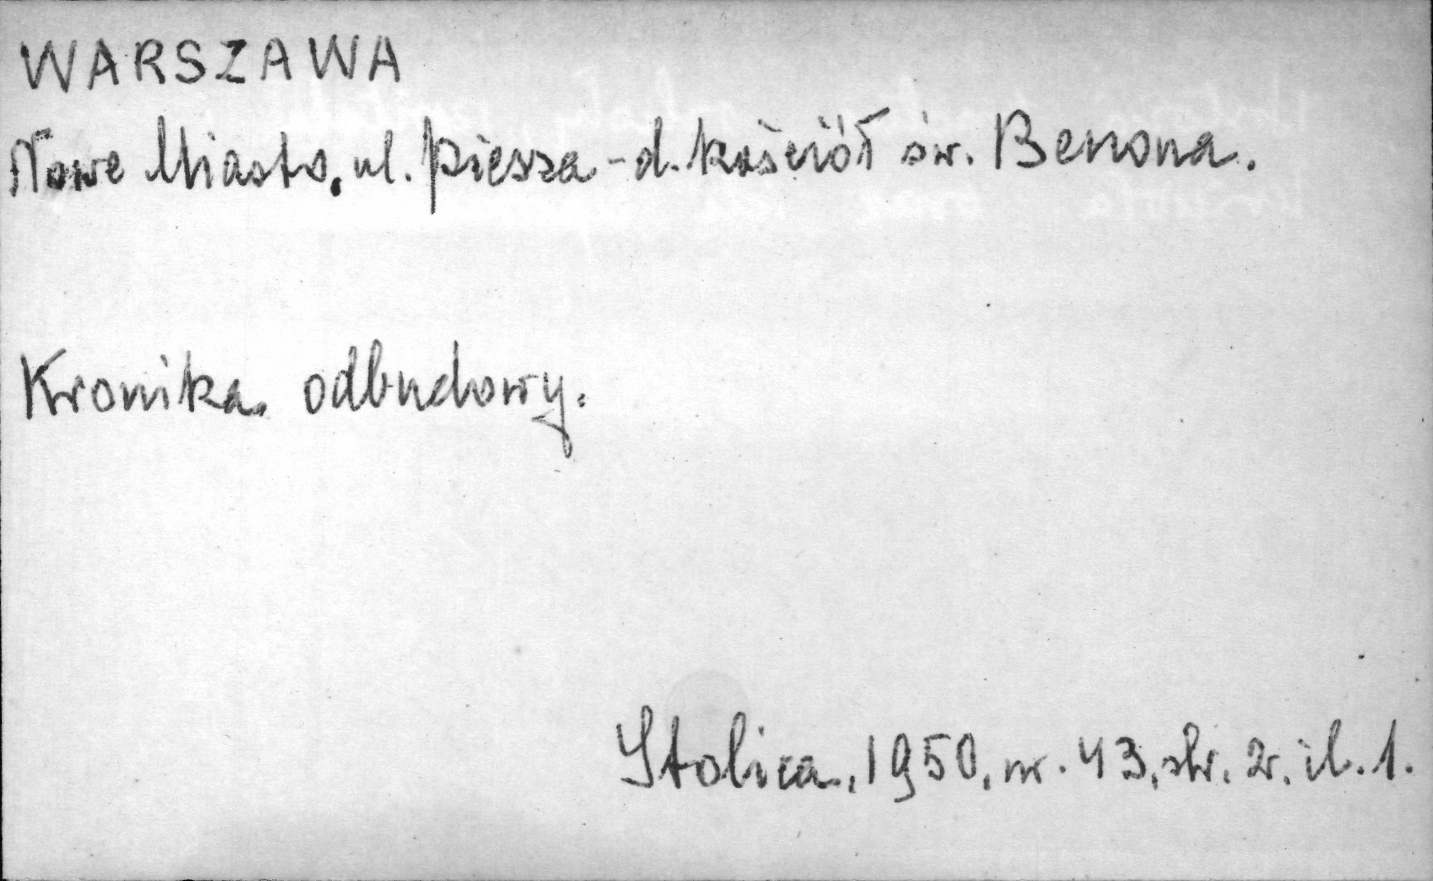 WARSZAWA
Nowe Miasto, ul. piesza - d. kościół św. Benona.
Kronika odbudowy.
Stolica, 1950, nr. 43, str. 2, il. 1.